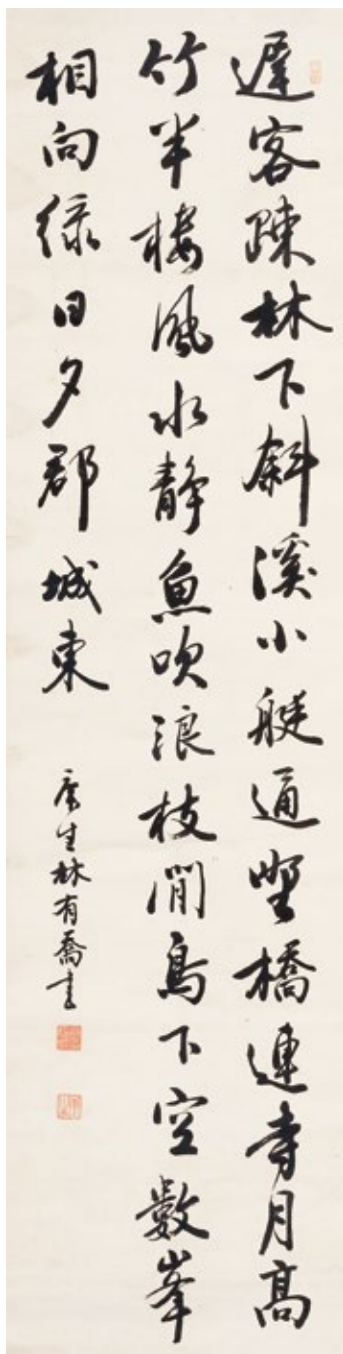 遲客踈林下斜溪小艇通野橋連寺月高
竹半樓風水靜魚吹浪枝閒鳥下空數峯
相向綠日夕郡城東
庠生林有喬書